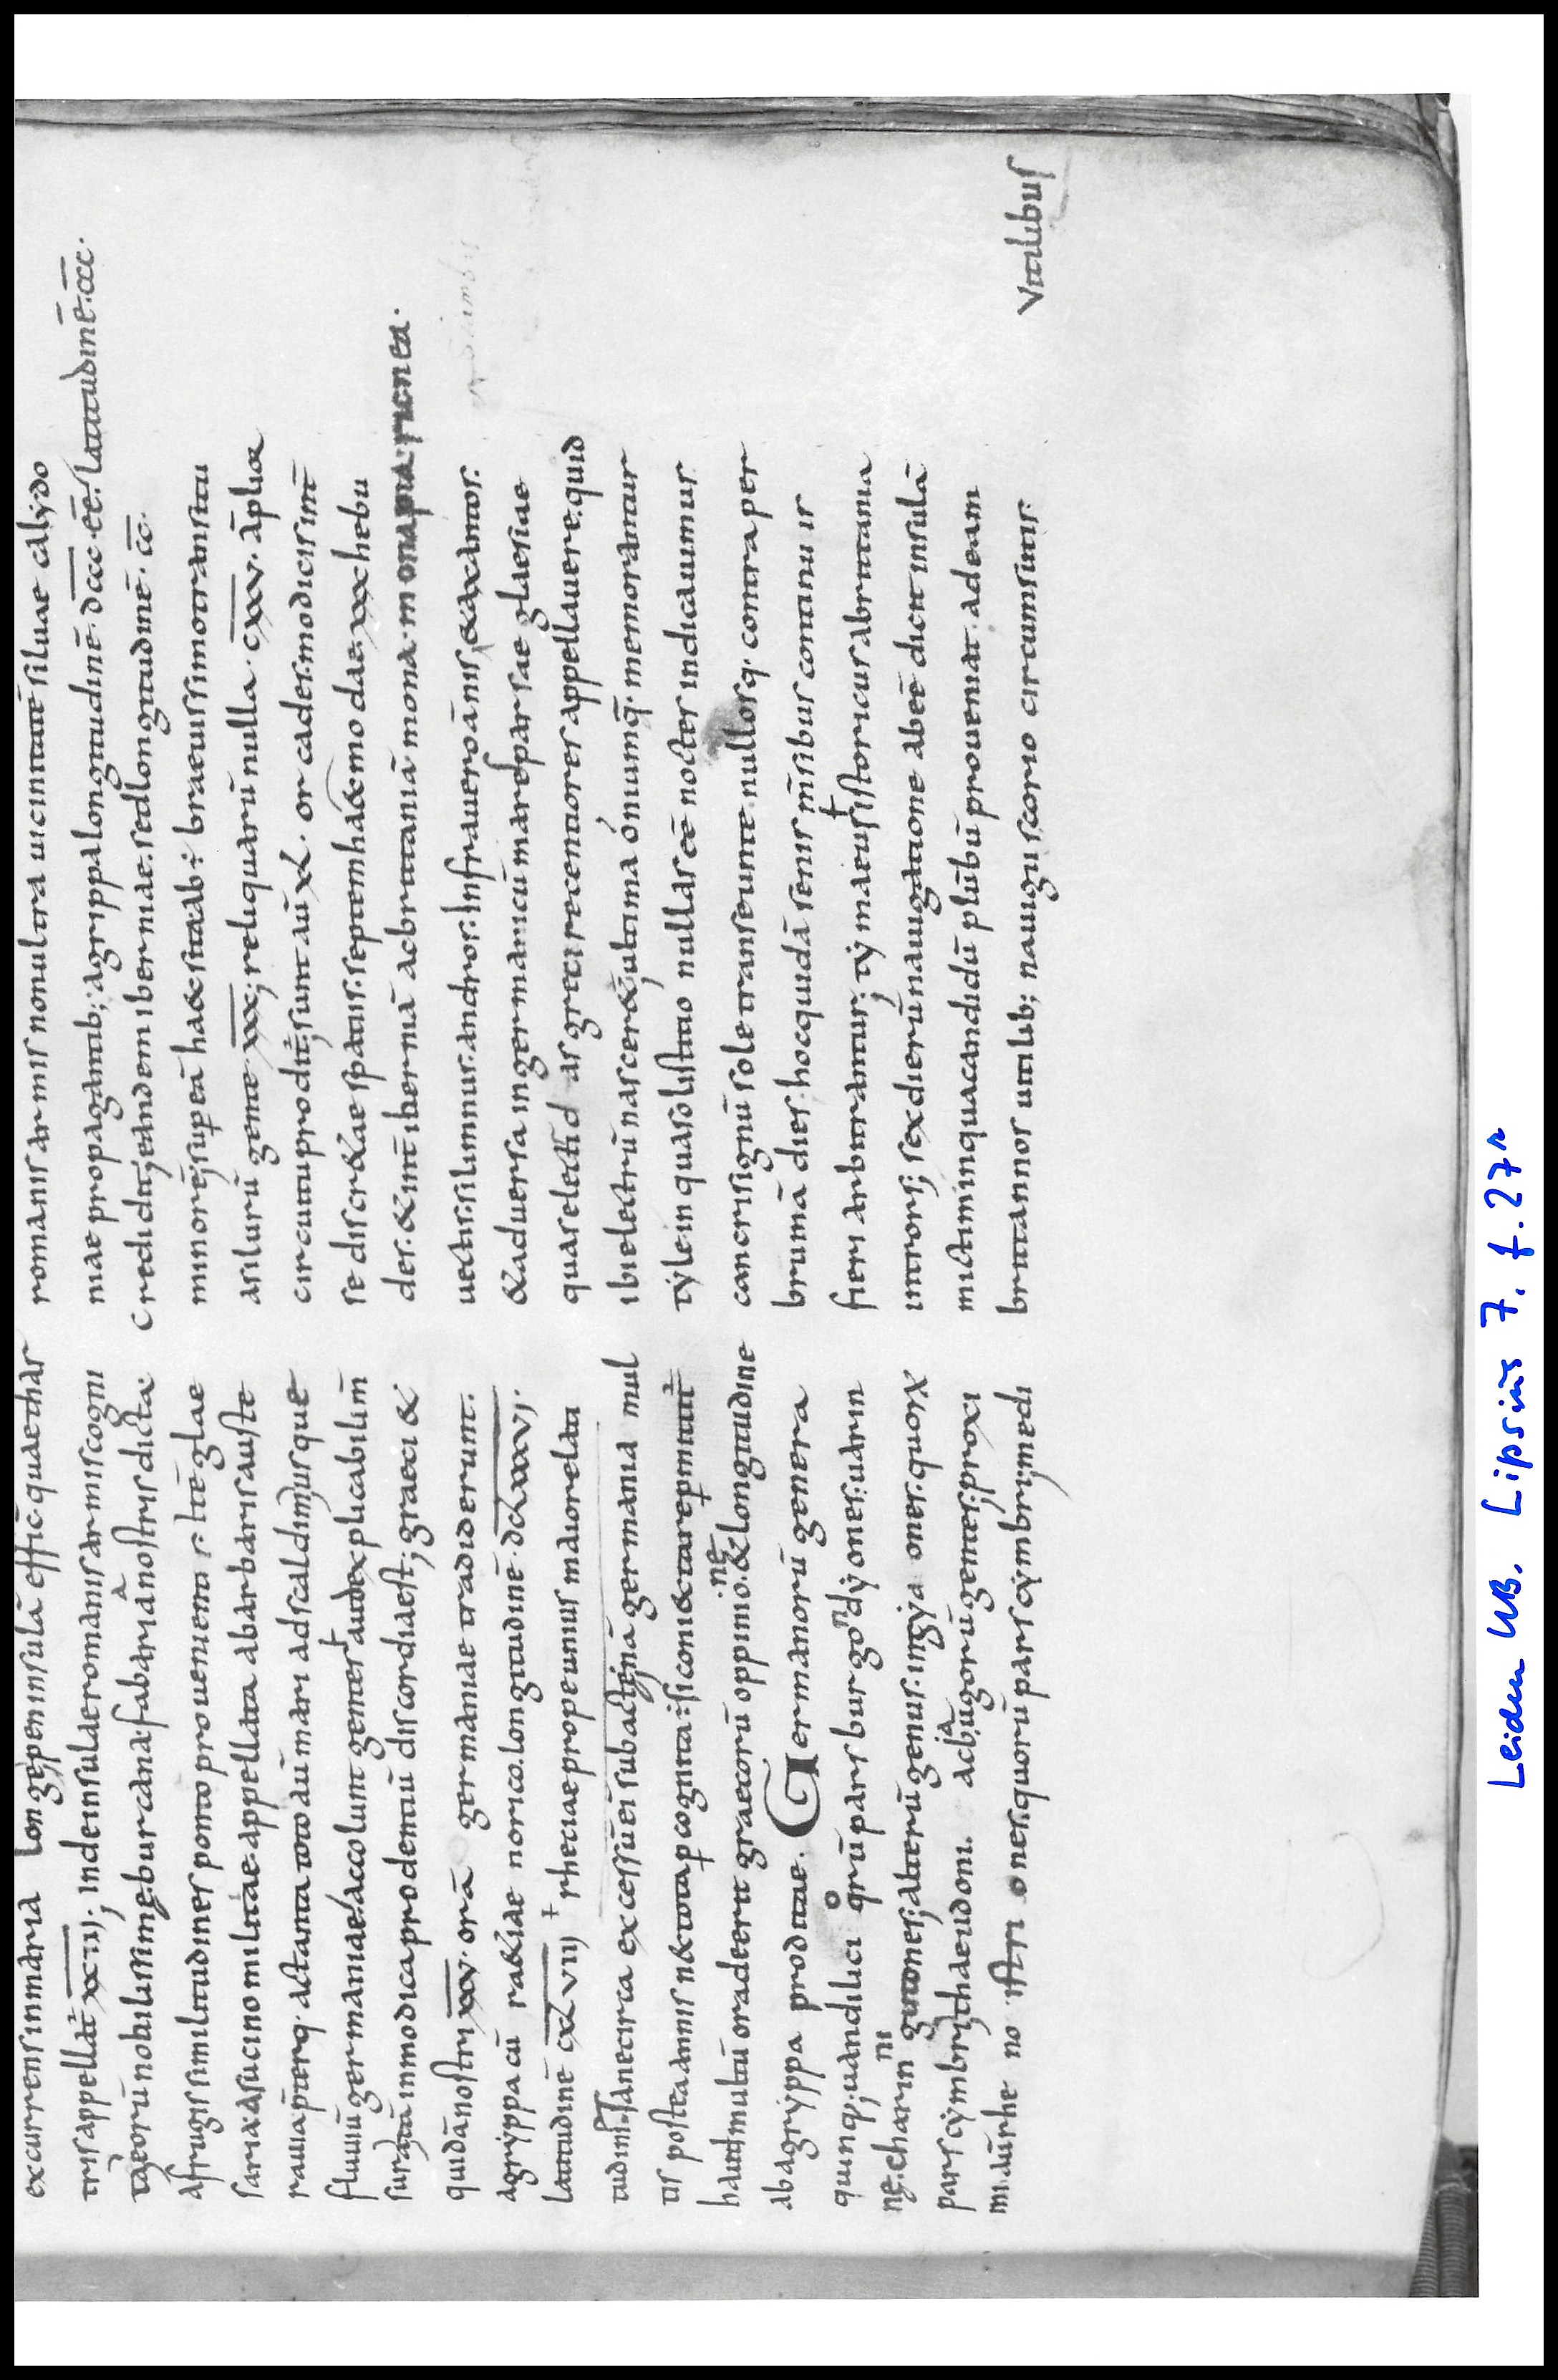 excurrens in maria longe peninsulā effic̄ quae thas
tris appellat̄ x̄x̄īīī; inde insulae romanis armis cogni
taeorū nobilissime burcana fabariā nostris dicta
a frugis similitudines ponto provenientis. itē glae
saria a sucino militiae appellata a barbaris auste
ravia p̄terq. actanta toto aū mari ad scaldim usque
fluviū germaniae accolunt gentes haud explicabili m̄
sura tā inmodica prodentiū discordia est; graeci &
quidā nostri x̄x̄v̄. orā germaniae tradiderunt.
agryppa cū ra&iae norico longitudinē. d̄c̄l̄x̄x̄x̄v̄ī.
latitudinē c̄x̄l̄v̄īīī rhetiae prope unius maiore lati
tudinis sane circa excessū ei subactęnā germania mul
tis postea annis n& tota p̱cognita : si coniectare p̱mittit̄
haut multū ora deerit graecorū oppinione. & longitudine
ab agryppa proditae. Germanorū genera
quinq; uandilici qrū pars burgondẏones. uarin
nę. charinni gutones; alterū genus. ingẏa ones. quorx
pars cẏmbri thaeudoni. ac biaugorū gentes; proxi
mi aū rhe no istri ones. quorū pars cẏmbri; medi
romanis armis non ultra uicinitatē siluae calẏdo
niae propagantib; agrippa longitudinē. d̄c̄c̄c̄. eē. latitudinē. c̄c̄c̄.
Credidit; eandem iberniae. sed longitudinē. c̄c̄.
minorē; super eā ha& sita ab : braeuissimo transitu
a silurū gente x̄x̄x̄; reliquarū nulla. c̄x̄x̄v̄. āplior
circuitu prodit̄; sunt aū xl. orcades. modicis int̄
se discr&ae spatiis. septem ha&mo dae. xxx hebu
des. & int̄ ibernā ac brittaniā mona. monapia. ricnea.
uectis. silimnus. andros. Infra uero ānis, & axantos.
& aduersa in germanicū mare sparsae glaesiae
quas elect̄d as greci recentiores appellauere. quid
ibi electrū nascer&; ultima omiumq̄. memorantur
tẏle in qua solistitio nullas eē noctes indicauimus.
cancri signū sole transeunte. nullosq. contra per
brumā dies. hoc quidā senis m̄sibus continuis
fieri arbitrantur; tẏmaeus istoricus abrittania
introrsus; sex dierū nauigatione abeē dicit insulā
mictim in qua candidū plūbū proueniat. ad eam
brittannos uitilib; nauigiis corio circumsutis
Vitilibus
Leiden UB. Lipsius 7. f. 27r